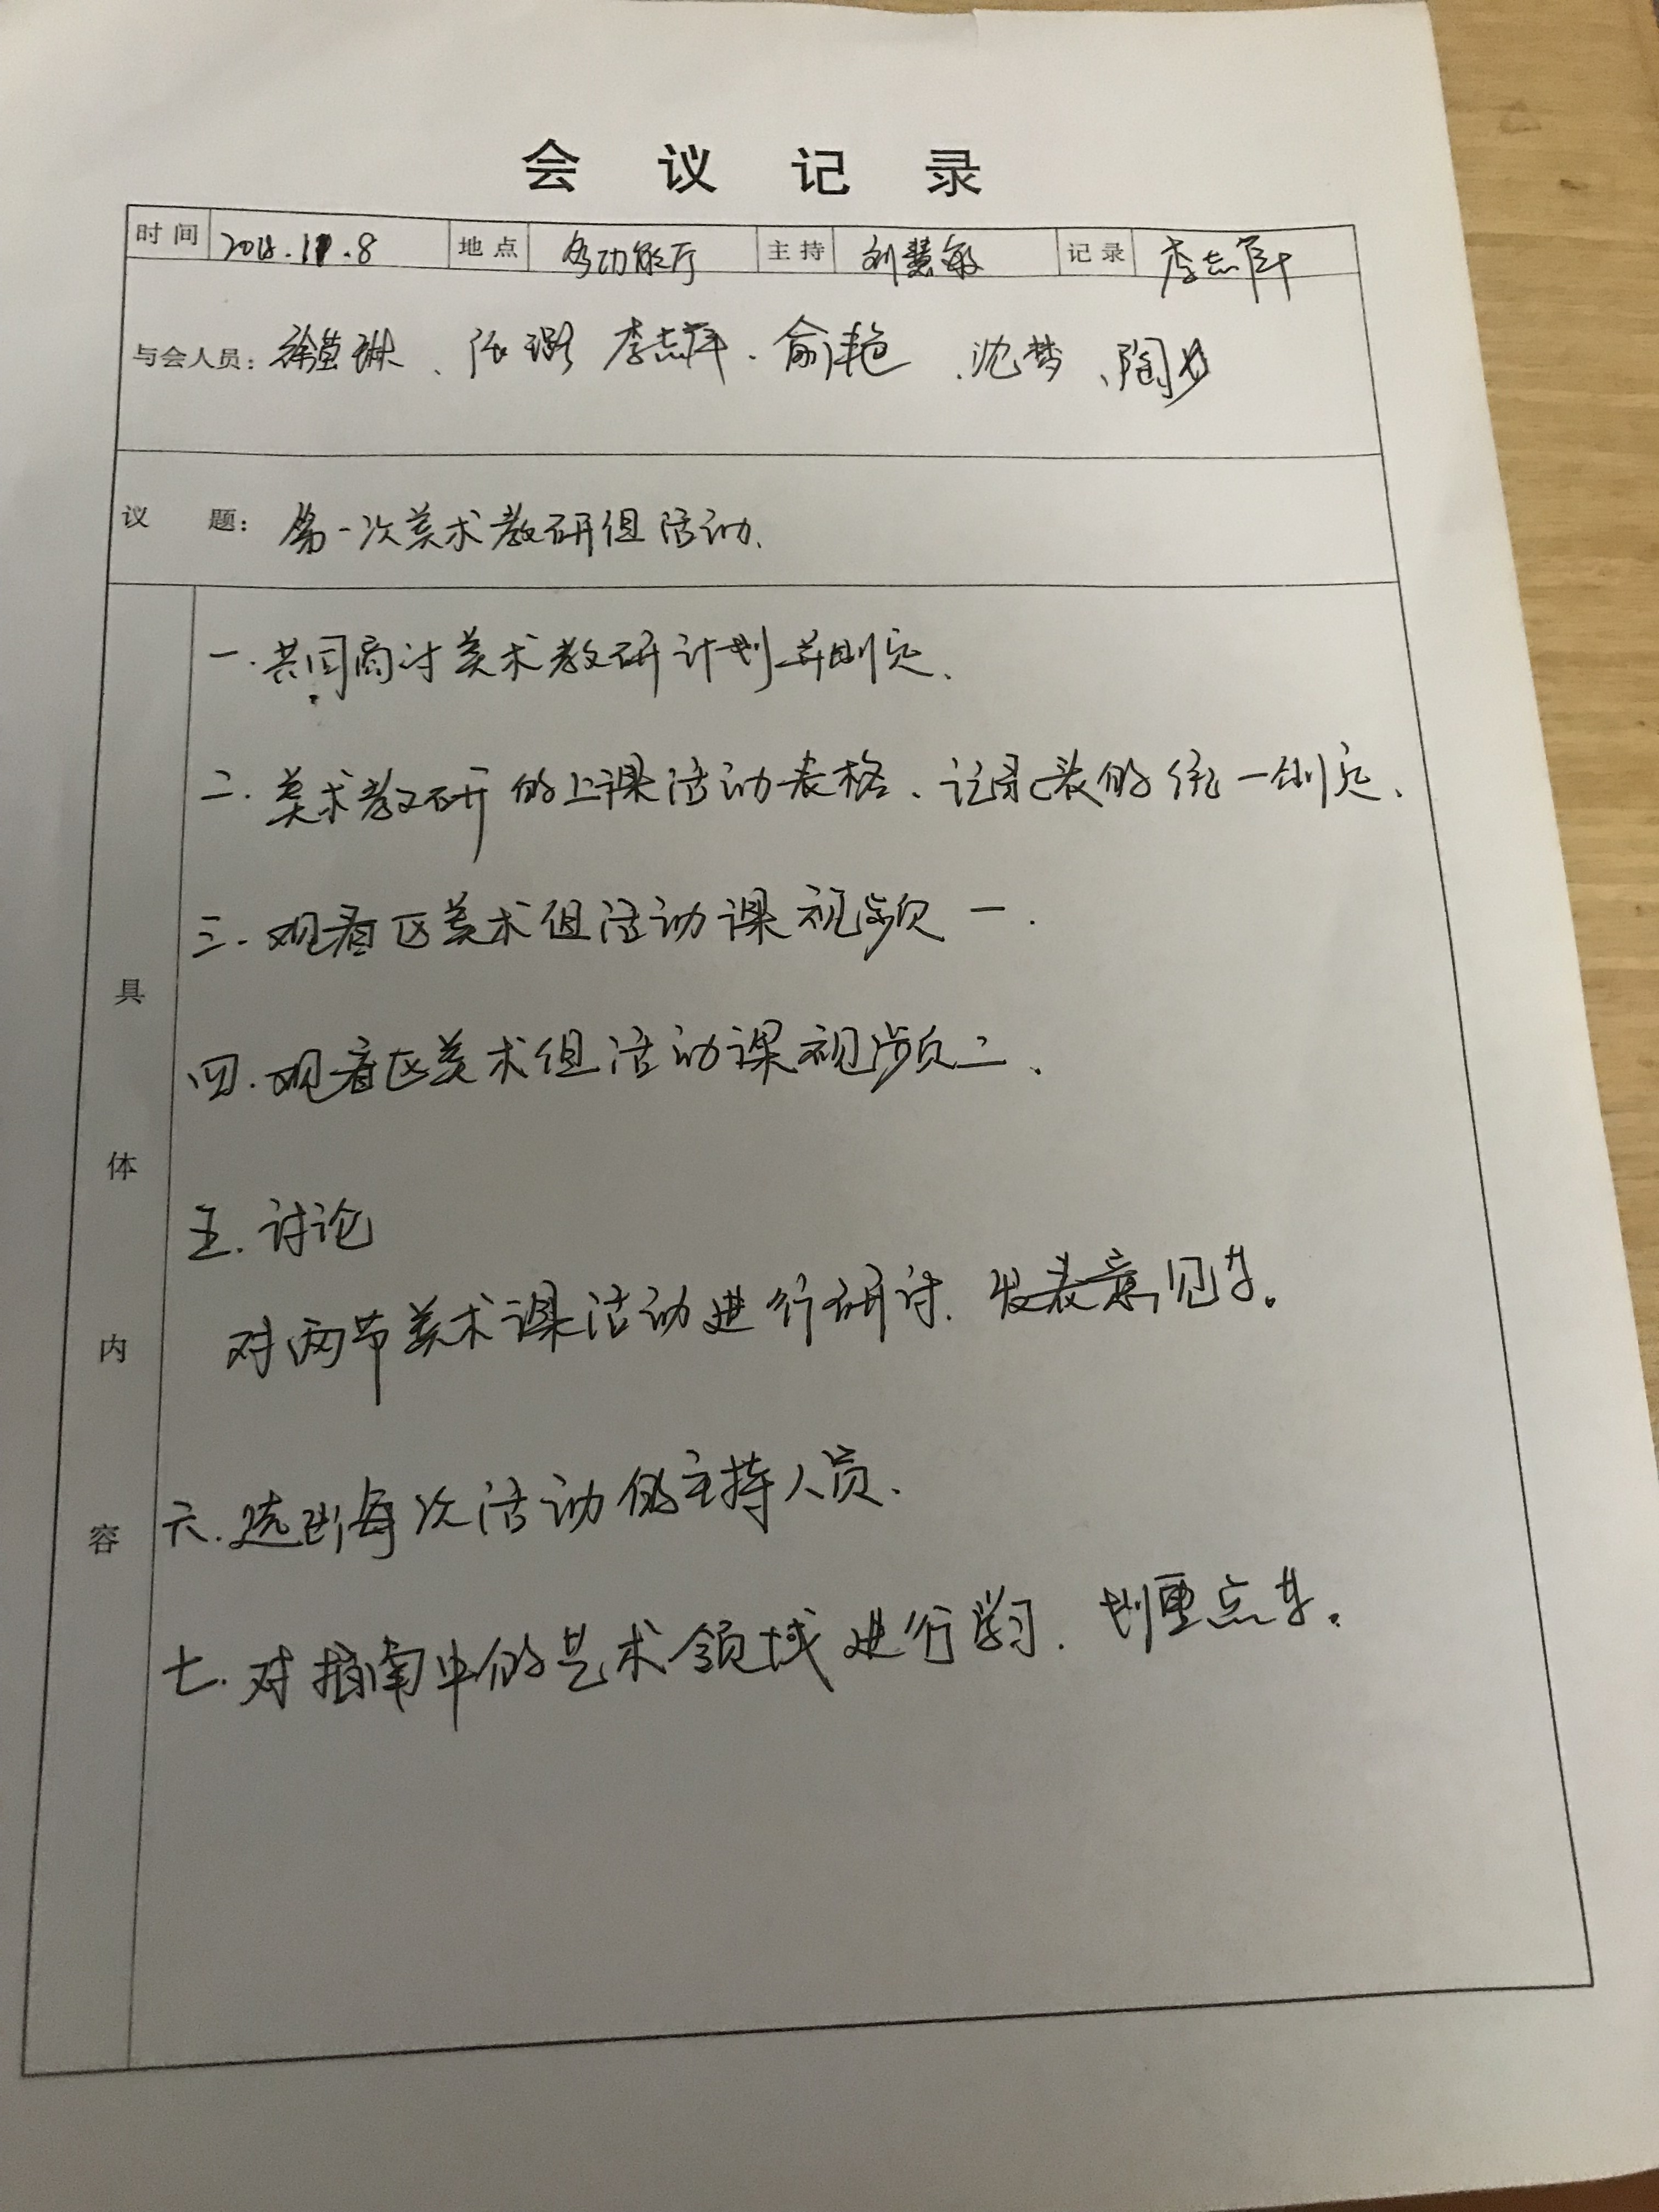 会议记录
时间 2018.11.8 地点 多功能厅 主持 刘慧敏 记录 李志萍
与会人员：徐 琳、张璐 李志萍、俞艳、沈梦、陶
议题：第一次美术教研组活动、
一、共同商讨美术教研计划并制定、
二、美术教研的上课活动表格、记录表的统一制定、
三、观看区美术组活动课视频一、
四、观看区美术组活动课视频二、
五、讨论
对两节美术课活动进行研讨、发表意见等。
六、选出每次活动的主持人员、
七、对指南中的艺术领域进行学习、划重点等。
具体内容